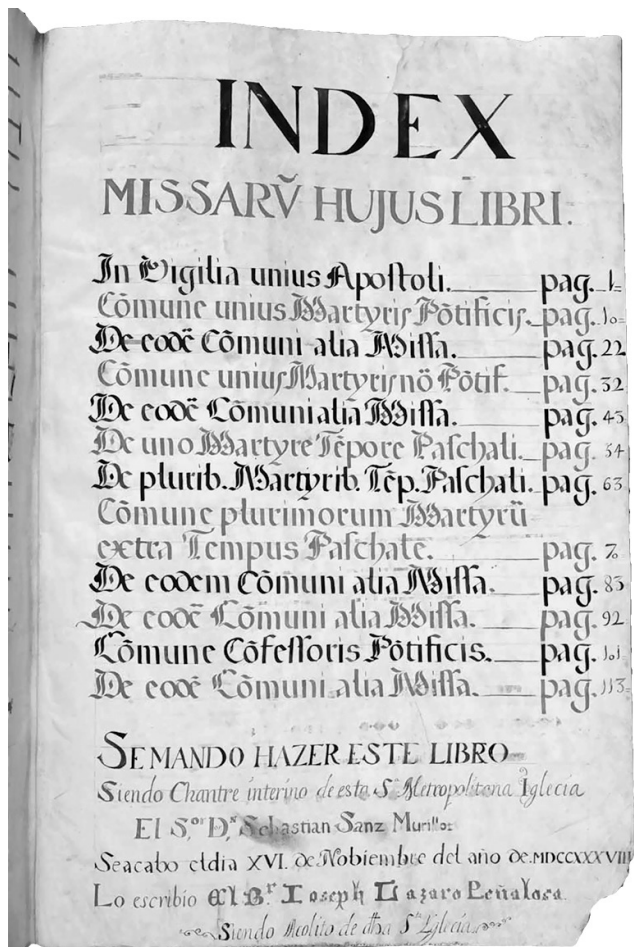 INDEX
MISSARṼ HUJUS LIBRI.
In Vigilia unius Apostoli. pag. 1
Cõmune unius Martyris Põtificis. pag. 10
De eodẽ Cõmuni alia Missa. pag. 22
Cõmune unius Martyris nõ Põtif. pag. 32
De eodẽ Cõmuni alia Missa. pag. 43
De uno Martyre Tẽpore Paschali. pag. 54
De plurib. Martyrib. Tẽp. Paschali. pag. 63
Cõmune plurimorum Martyrũ
extra Tempus Paschale. pag. 76
De eodem Cõmuni alia Missa. pag. 83
De eodẽ Cõmuni alia Missa. pag. 92
Cõmune Cõfessoris Põtificis. pag. 101
De eodẽ Cõmuni alia Missa. pag. 113
SEMANDO HAZER ESTE LIBRO
Siendo Chantre interino de esta S.ta Metropolitana Iglecia
El S.or D.n Sebastian Sanz Murillo:
Seacabo el dia XVI. de Nobiembre del año de MDCCXXXVIII
Lo escribio El B.r Ioseph Lazaro Peñalosa.
Siendo Acolito de dha S.ta Iglecia